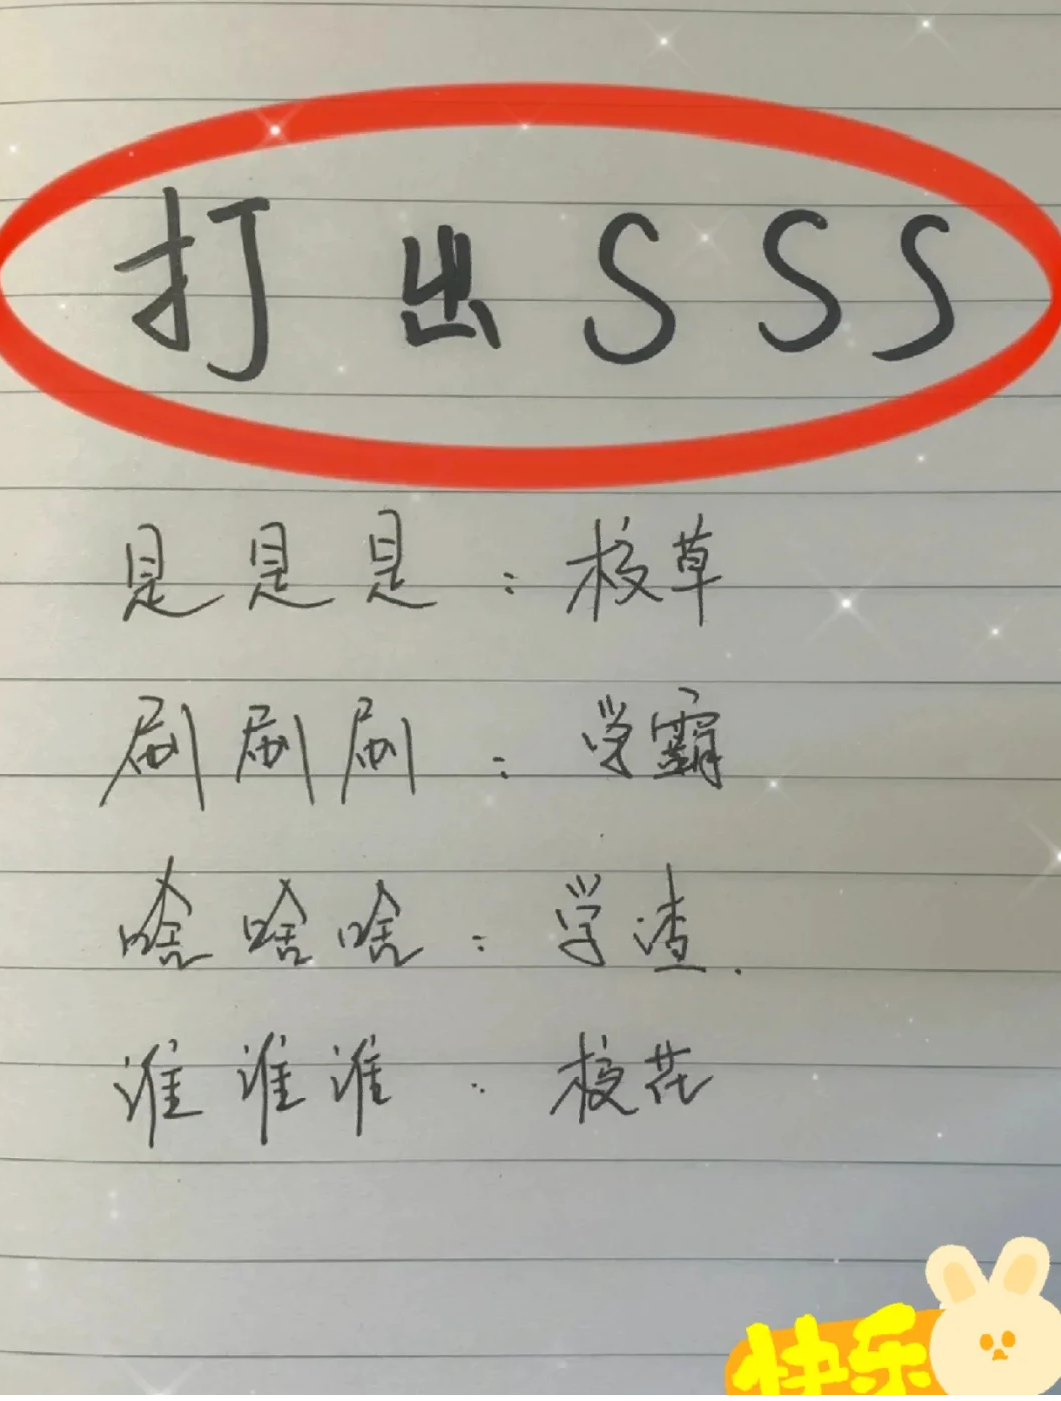 打出SSS
是是是:校草
刷刷刷:学霸
啥啥啥:学渣.
谁谁谁:校花
快乐